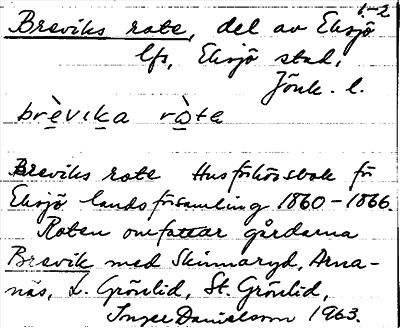 1-2
Breviks rote, del av Eksjö
lfs, Eksjö stad,
Jönk. l.
brèvika ròte
Breviks rote Husförhörsbok för
Eksjö landsförsamling 1860-1866.
Roten omfattar gårdarna
Brevik med Skinnaryd, Arna-
näs, L. Grönlid, St. Grönlid,
Inger Danielsson 1963.